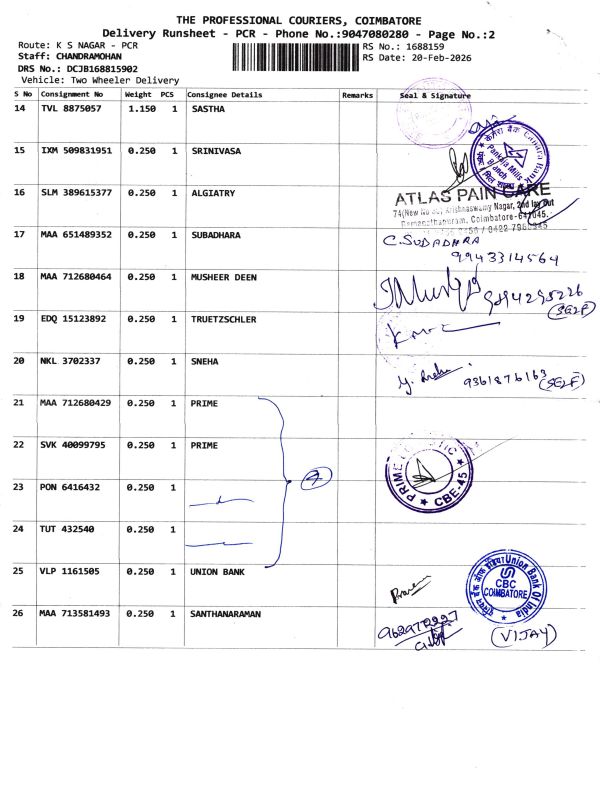 THE PROFESSIONAL COURIERS, COIMBATORE
Delivery Runsheet - PCR - Phone No.:9047080280 - Page No.:2
Route: K S NAGAR - PCR
RS No.: 1688159
Staff: CHANDRAMOHAN
RS Date: 20-Feb-2026
DRS No.: DCJB168815902
Vehicle: Two Wheeler Delivery
S No Consignment No Weight PCS Consignee Details Remarks Seal & Signature
14 TVL 8875057 1.150 1 SASTHA
15 IXM 509831951 0.250 1 SRINIVASA
केनरा बैंक Canara Bank
Pankaja Mills
Branch
16 SLM 389615377 0.250 1 ALGIATRY
ATLAS PAIN CARE
Krishnaswamy Nagar, 2nd lay Out
Ramanathapuram, Coimbatore-641045.
17 MAA 651489352 0.250 1 SUBADHARA
C.SUDADHARA
9943314564
18 MAA 712680464 0.250 1 MUSHEER DEEN
(SELF)
19 EDQ 15123892 0.250 1 TRUETZSCHLER
20 NKL 3702337 0.250 1 SNEHA
9361876163 (SELF)
21 MAA 712680429 0.250 1 PRIME
22 SVK 40099795 0.250 1 PRIME
PRIME
CBE-45
23 PON 6416432 0.250 1
24 TUT 432540 0.250 1
25 VLP 1161505 0.250 1 UNION BANK
Union Bank Of India
CBC
COIMBATORE
26 MAA 713581493 0.250 1 SANTHANARAMAN
(VIJAY)